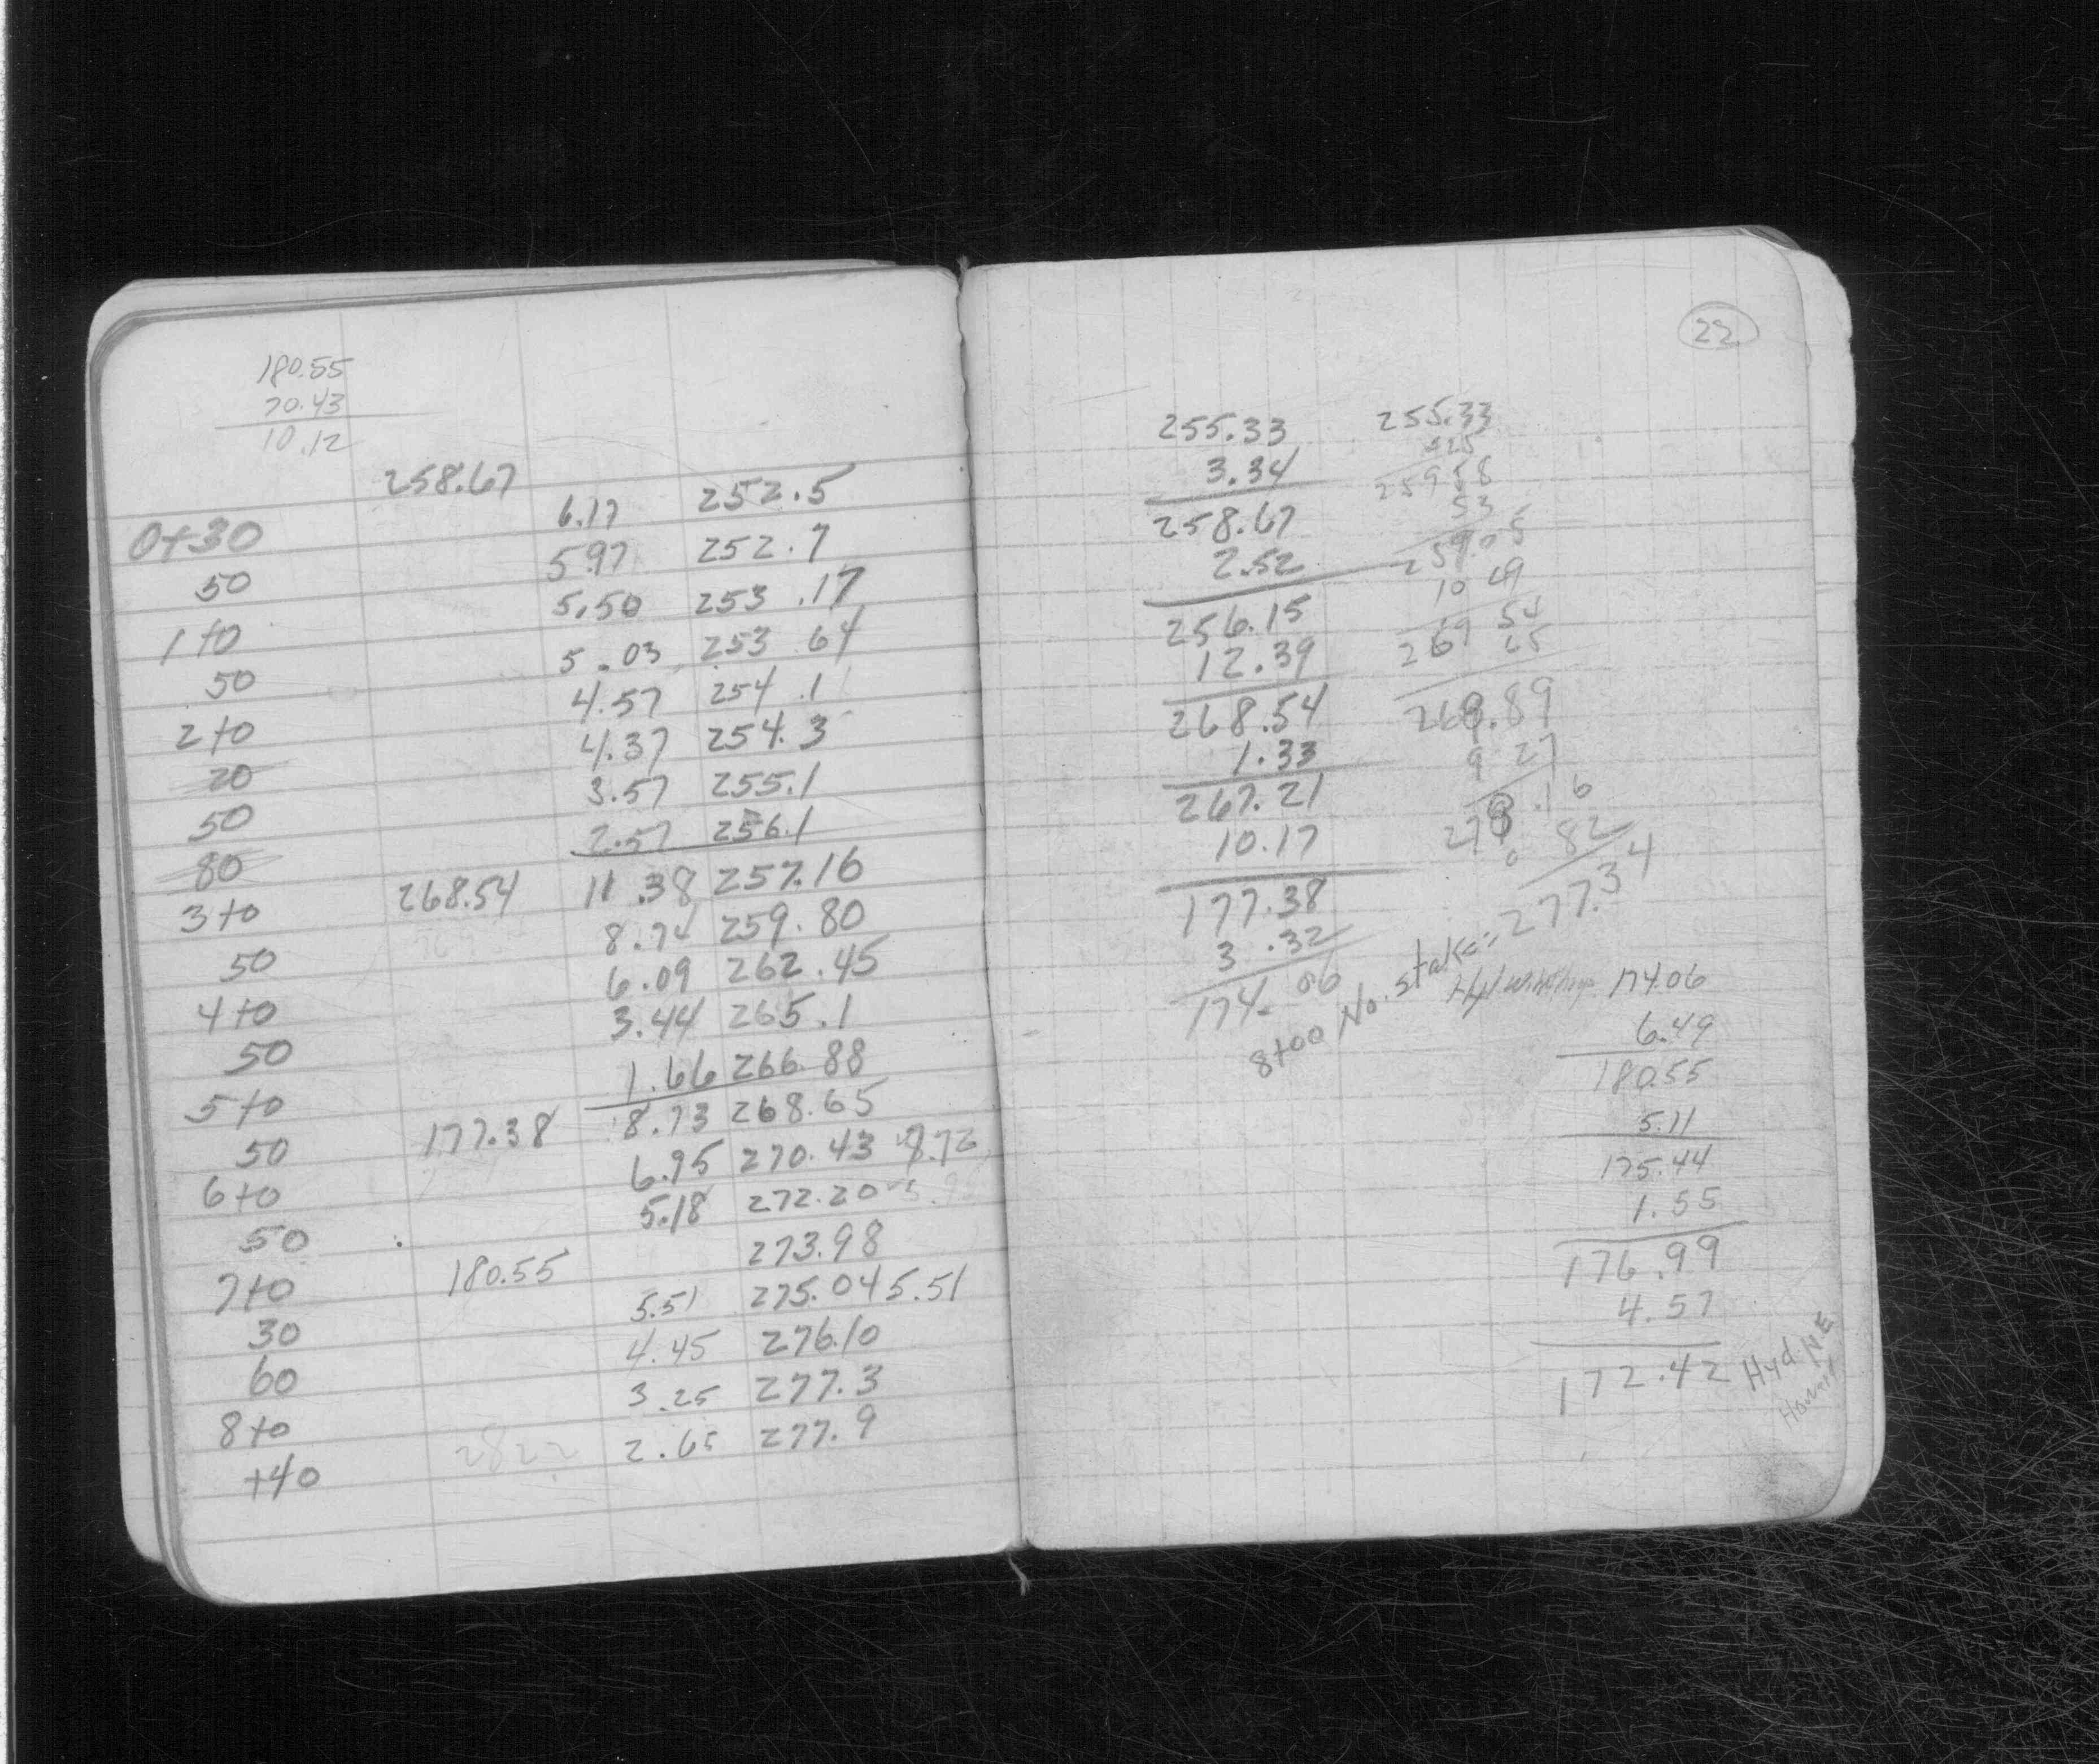 180.55
70.43
10.12
258.67
0+30 6.17 252.5
50 5.97 252.7
1+0 5.50 253.17
50 5.03 253 64
2+0 4.57 254.1
20 4.37 254.3
50 3.57 255.1
80 2.57 256.1
3+0 268.54 11.38 257.16
50 8.74 259.80
4+0 6.09 262.45
50 3.44 265.1
5+0 1.66 266.88
50 177.38 8.73 268.65
6+0 6.95 270.43
50 5.18 272.20
7+0 180.55 273.98
30 5.51 275.04 5.51
60 4.45 276.10
8+0 3.25 277.3
+40 2.65 277.9
22
255.33
3.34
258.67
2.52
256.15
12.39
268.54
1.33
267.21
10.17
177.38
3.32
174.06
255.33
259 58
53
259.05
10 49
269 54
65
268.89
9 27
278.16
82
277.34
8+00 No. stake = 277.34
174.06
6.49
180.55
5.11
175.44
1.55
176.99
4.57
172.42 Hyd. NE